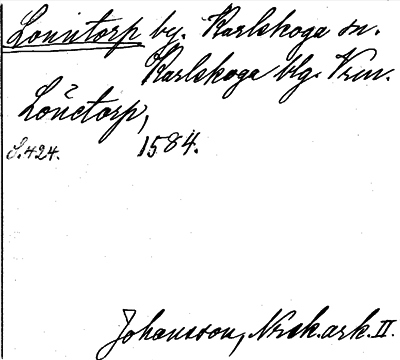 Lonntorp by. Karlskoga sn.
Karlskoga blg. Vrm.
Lonctorp,
S. 424. 1584.
Johansson, Nzsk.ark. II.